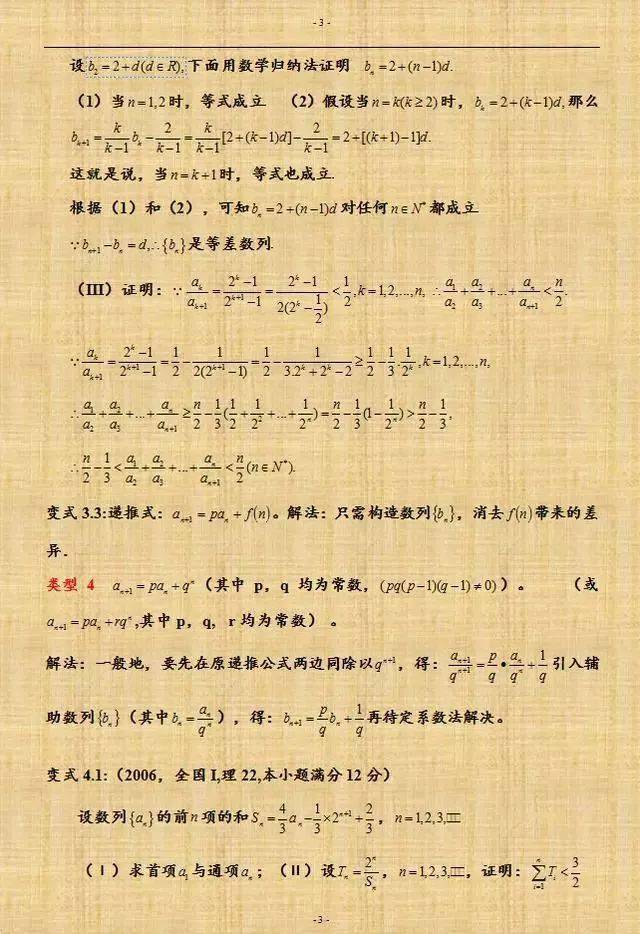 - 3 -
设b₂ = 2 + d(d ∈ R),下面用数学归纳法证明 bₙ = 2 + (n − 1)d.
（1）当n = 1,2时，等式成立 （2）假设当n = k(k ≥ 2)时，bₖ = 2 + (k − 1)d,那么
bₖ₊₁ = k/(k−1) bₖ − 2/(k−1) = k/(k−1) [2 + (k − 1)d] − 2/(k−1) = 2 + [(k + 1) − 1]d.
这就是说，当n = k + 1时，等式也成立.
根据（1）和（2），可知bₙ = 2 + (n − 1)d对任何n ∈ N*都成立
∵bₙ₊₁ − bₙ = d,∴{bₙ}是等差数列.
（III）证明：∵ aₖ/aₖ₊₁ = (2ᵏ − 1)/(2ᵏ⁺¹ − 1) = (2ᵏ − 1)/(2(2ᵏ − 1/2)) < 1/2, k = 1,2,...,n, ∴ a₁/a₂ + a₂/a₃ + ... + aₙ/aₙ₊₁ < n/2.
∵ aₖ/aₖ₊₁ = (2ᵏ − 1)/(2ᵏ⁺¹ − 1) = 1/2 − 1/(2(2ᵏ⁺¹ − 1)) = 1/2 − 1/(3.2ᵏ + 2ᵏ − 2) ≥ 1/2 − 1/3 . 1/2ᵏ, k = 1,2,...,n,
∴ a₁/a₂ + a₂/a₃ + ... + aₙ/aₙ₊₁ ≥ n/2 − 1/3(1/2 + 1/2² + ... + 1/2ⁿ) = n/2 − 1/3(1 − 1/2ⁿ) > n/2 − 1/3,
∴ n/2 − 1/3 < a₁/a₂ + a₂/a₃ + ... + aₙ/aₙ₊₁ < n/2 (n ∈ N*).
变式 3.3:递推式：aₙ₊₁ = paₙ + f(n)。解法：只需构造数列{bₙ}，消去f(n)带来的差
异．
类型 4 aₙ₊₁ = paₙ + qⁿ（其中 p，q 均为常数，(pq(p − 1)(q − 1) ≠ 0)）。 （或
aₙ₊₁ = paₙ + rqⁿ,其中 p，q, r 均为常数）。
解法：一般地，要先在原递推公式两边同除以qⁿ⁺¹，得：aₙ₊₁/qⁿ⁺¹ = p/q • aₙ/qⁿ + 1/q 引入辅
助数列{bₙ}（其中bₙ = aₙ/qⁿ），得：bₙ₊₁ = p/q bₙ + 1/q 再待定系数法解决。
变式 4.1:（2006，全国 I,理 22,本小题满分 12 分）
设数列{aₙ}的前n项的和Sₙ = 4/3 aₙ − 1/3 × 2ⁿ⁺¹ + 2/3，n = 1,2,3,□□
（Ⅰ）求首项a₁与通项aₙ；（II）设Tₙ = 2ⁿ/Sₙ，n = 1,2,3,□□，证明：∑ᵢ₌₁ⁿ Tᵢ < 3/2
- 3 -